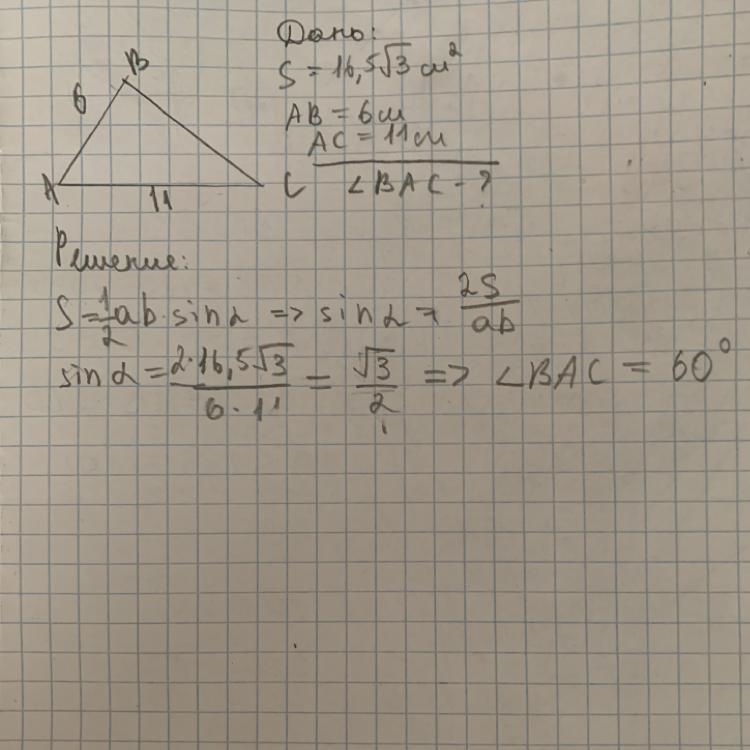 Дано:
S = 16,5√3 см²
AB = 6 см
AC = 11 см
∠BAC - ?
B
6
A
11
C
Решение:
S = 1/2 ab · sin α => sin α = 2S/ab
sin α = 2·16,5√3 / 6·11 = √3/2 => ∠BAC = 60°